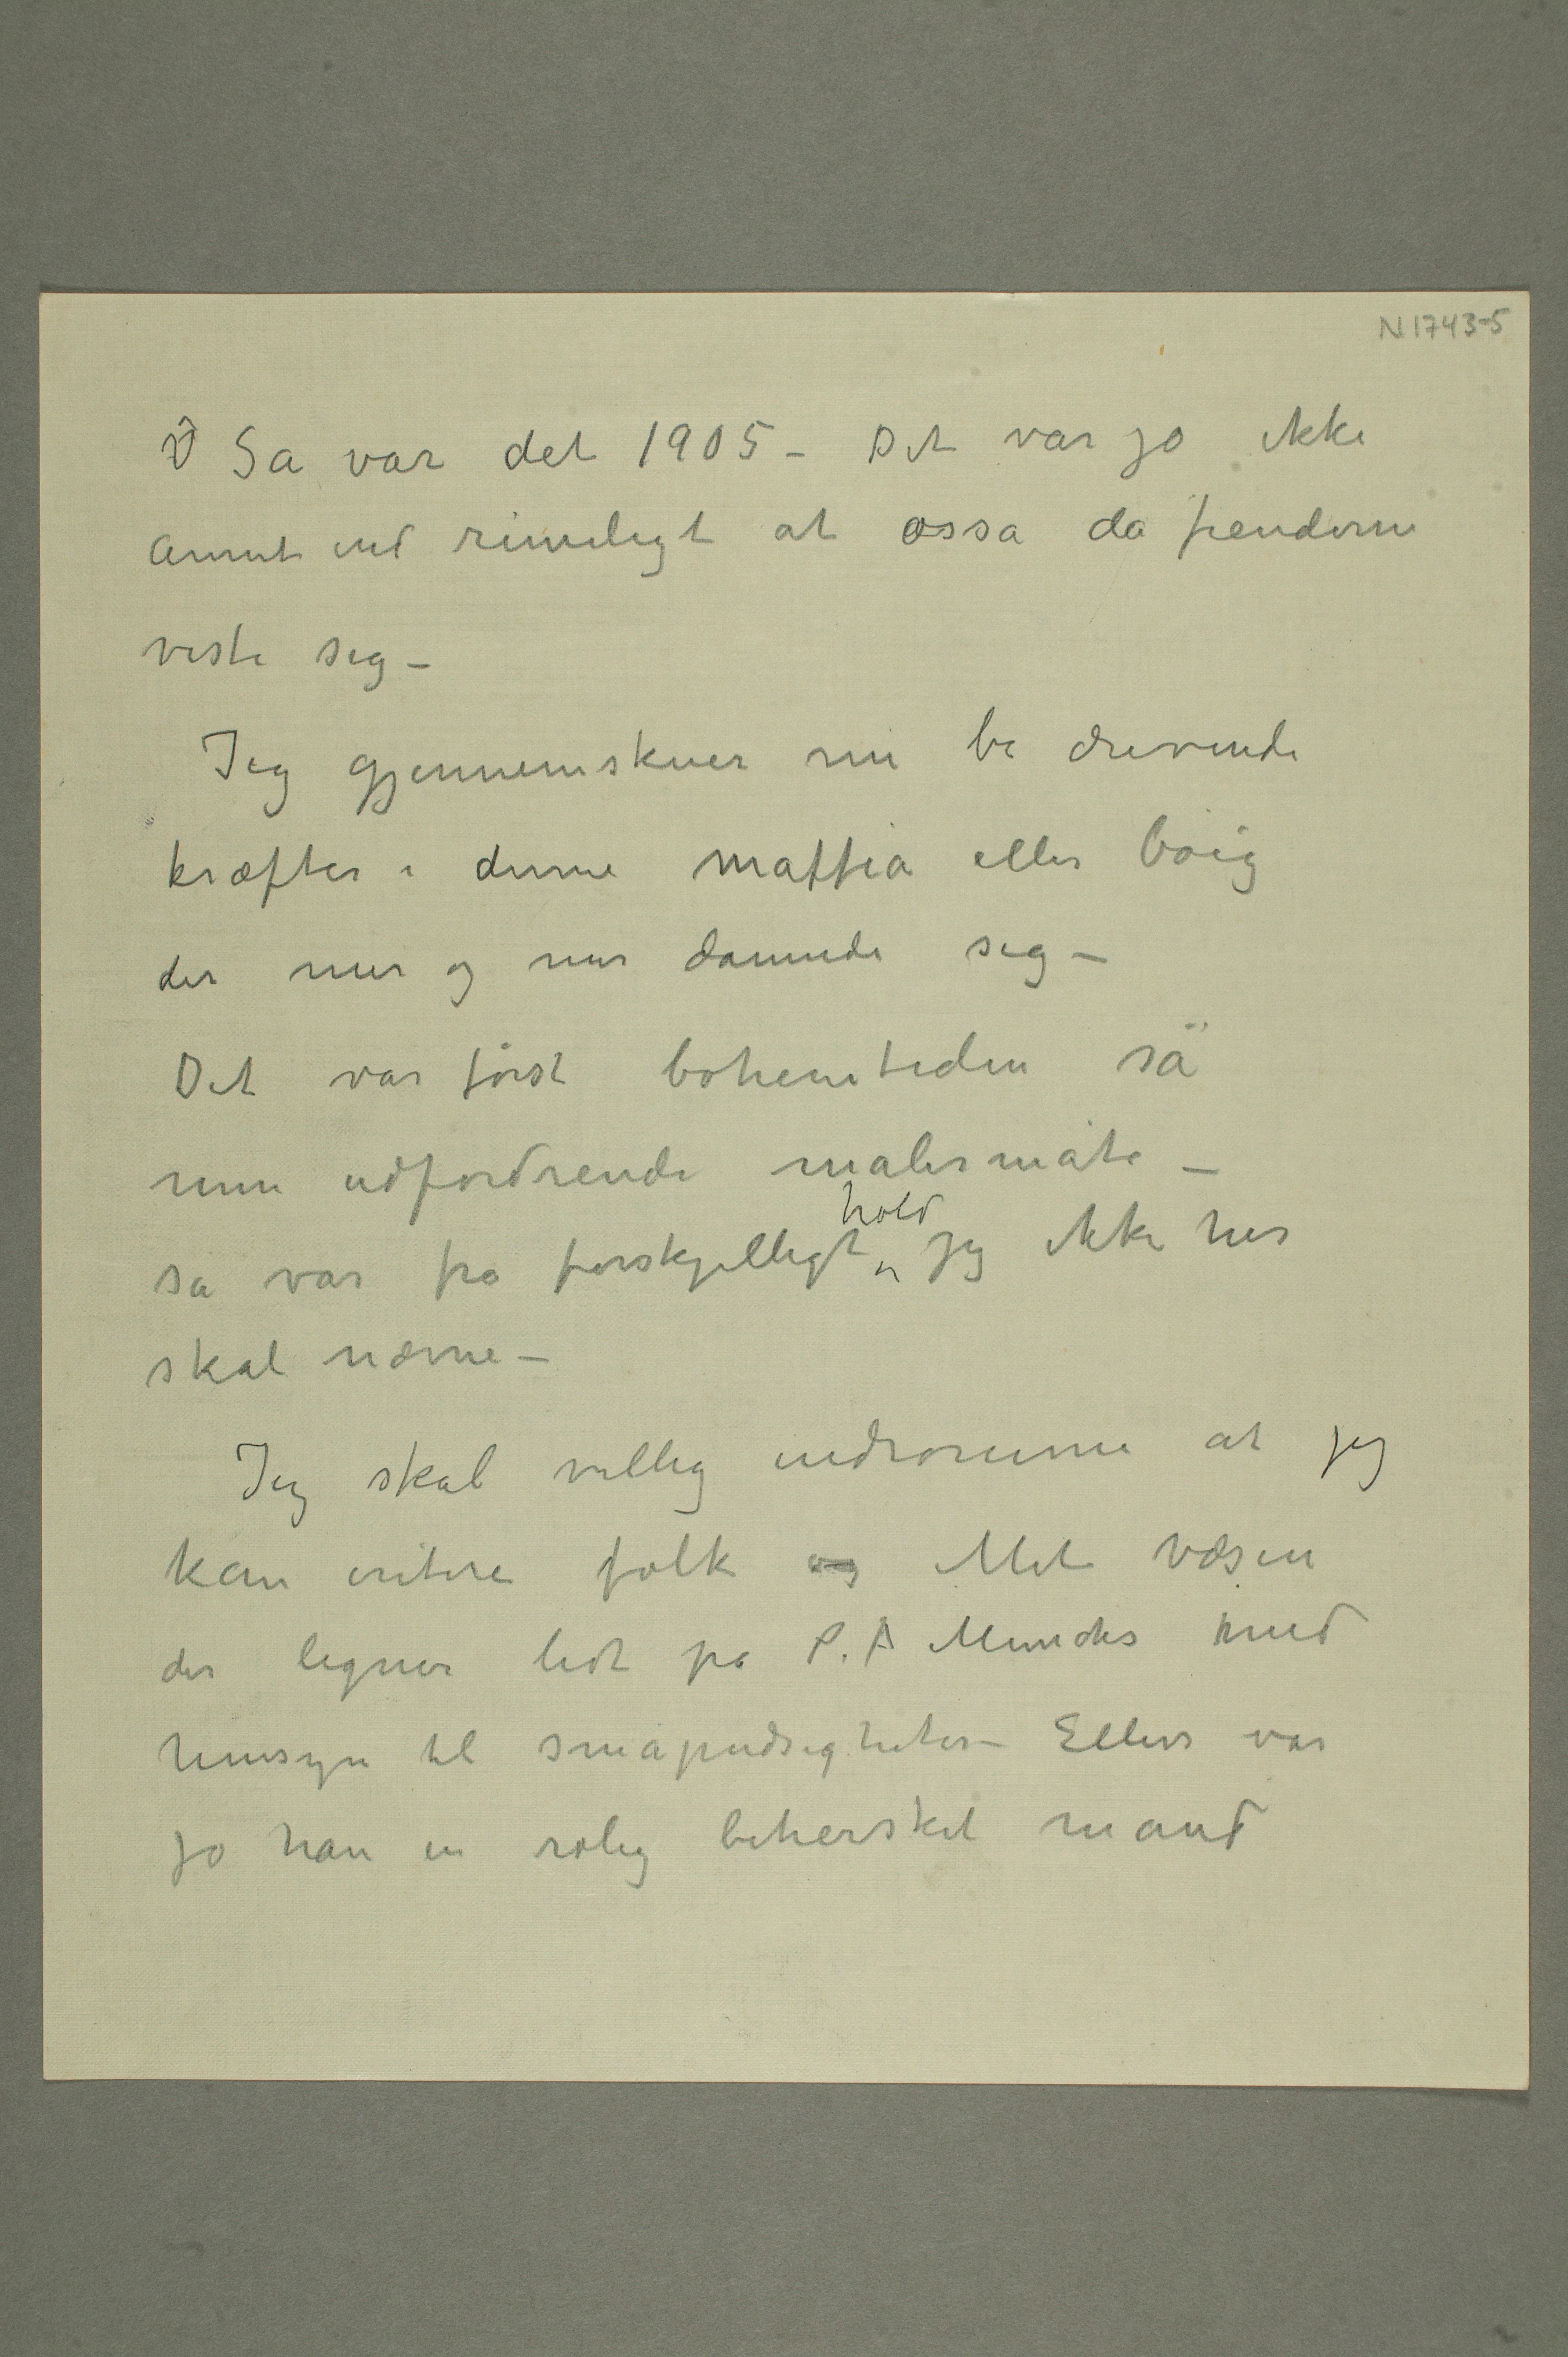 N 1743-5
Sa var det 1905 – Det var jo ikke
annet end rimeligt at ossa da fienderne
viste seg –
Jeg gjennemskuer nu de drevende
kræfter i denne maffia eller böig
der mer og mer dannede seg –
Det var först bohemtiden så
min udfordrende malermåte –
hold
sa var fra forskjelligt jeg ikke her
skal nævne –
Jeg skal villig indrømme at jeg
kan iritere folk og Mit væsen
der ligner lidt på P. A Munchs med
hensyn til småpudsigheter – Ellers var
jo han en rolig behersket mand